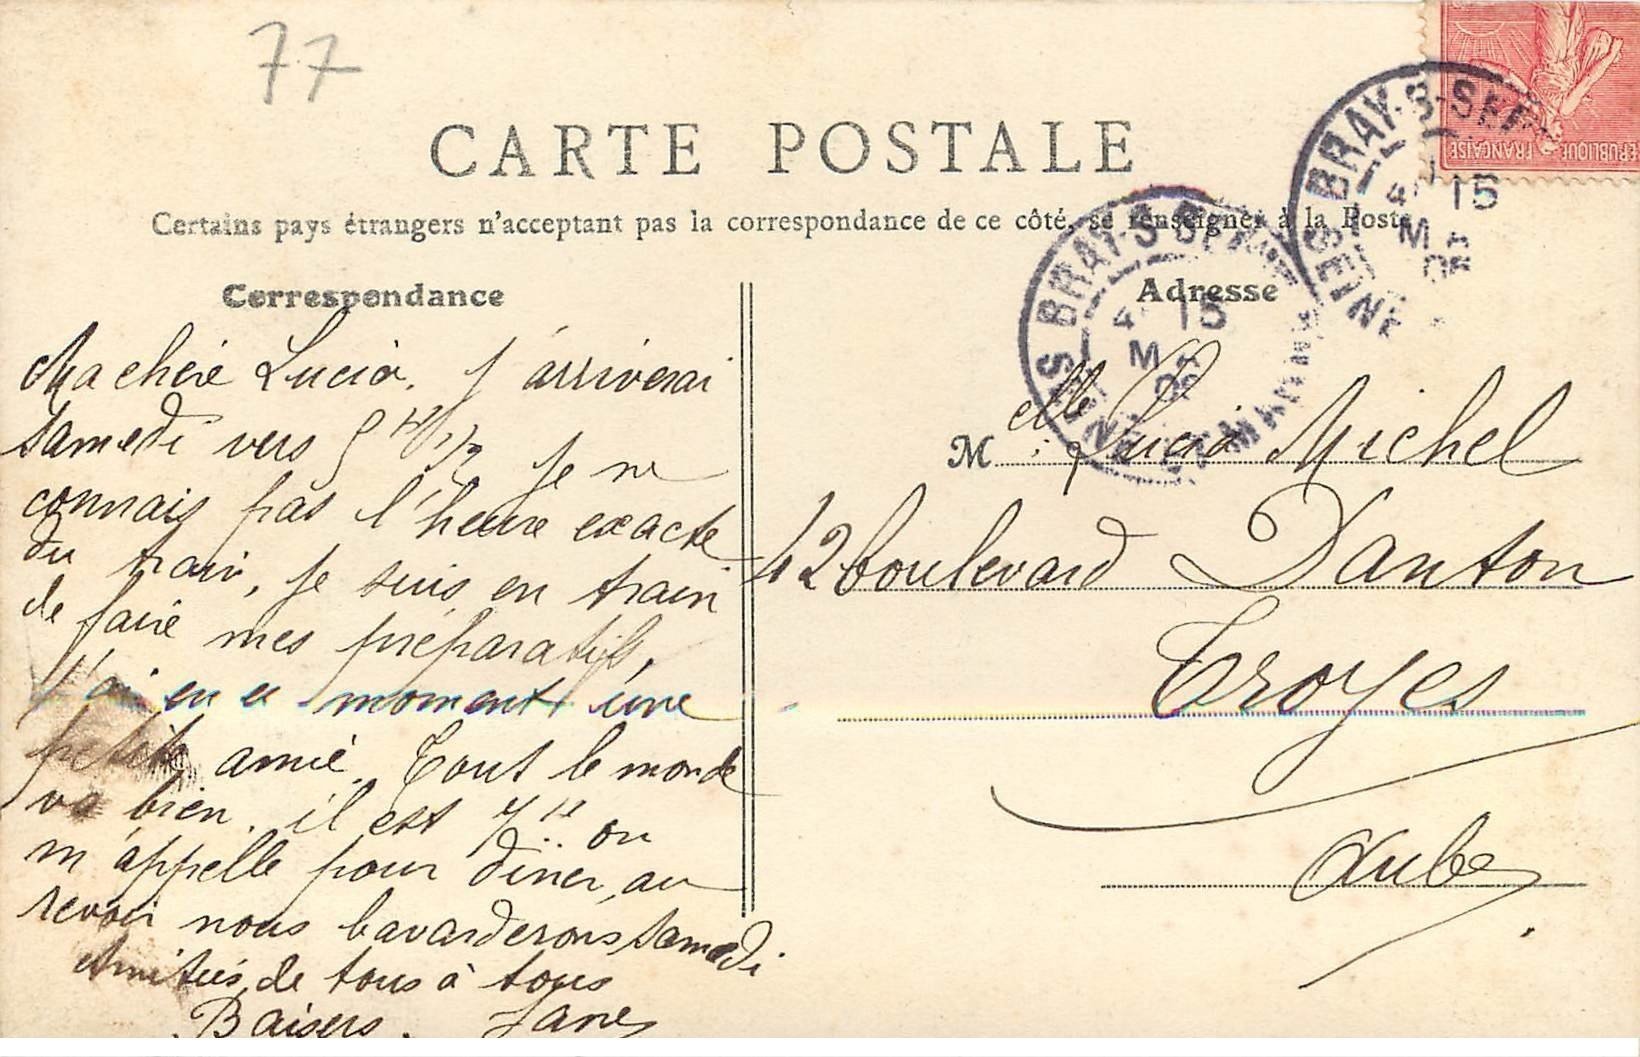 77
CARTE POSTALE
Certains pays étrangers n'acceptant pas la correspondance de ce côté, se renseigner à la Poste
Correspondance
Ma chère Lucia. J'arriverai
samedi vers 5 H 1/2 Je ne
connais pas l'heure exacte
du train, je suis en train
de faire mes préparatifs,
J'ai en ce moment une
petite amie. Tout le monde
va bien. il est 7 H on
m'appelle pour diner, au
revoir nous bavarderons samedi
Amitiés de tous à tous
Baisers. Jane
Adresse
Melle Lucia Michel
42 boulevard Danton
Troyes
Aube
BRAY-S-SEINE
4 15
M
SEINE
BRAY-S-SEINE
4 15
M
SEINE ET MARNE
RÉPUBLIQUE FRANÇAISE